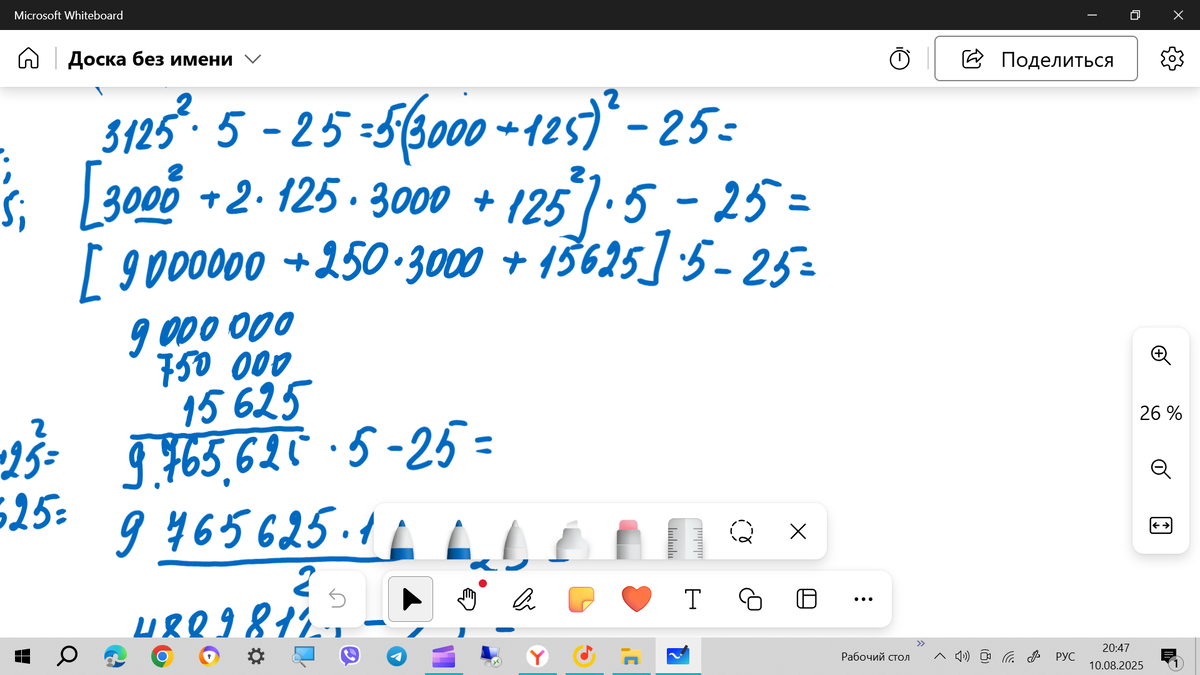 Microsoft Whiteboard
Доска без имени
Поделиться
3125² · 5 - 25 = 5(3000 + 125)² - 25 =
[3000² + 2 · 125 · 3000 + 125²] · 5 - 25 =
[9000000 + 250 · 3000 + 15625] · 5 - 25 =
9 000 000
750 000
15 625
9.765.625 · 5 - 25 =
25² =
625 =
9 765 625 · 1
2
26 %
T
Рабочий стол
РУС
20:47
10.08.2025
1